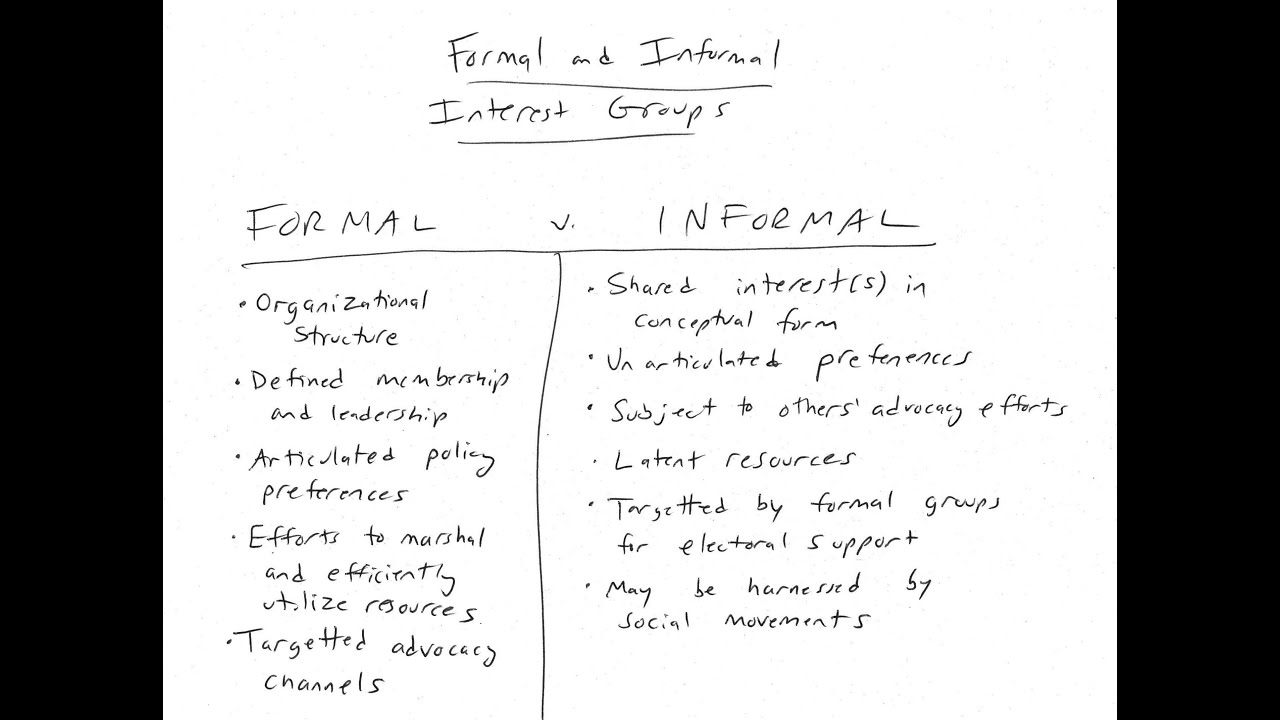 Formal and Informal
Interest Groups
FORMAL v. INFORMAL
• Organizational
structure
• Defined membership
and leadership
• Articulated policy
preferences
• Efforts to marshal
and efficiently
utilize resources
• Targetted advocacy
channels
• Shared interest(s) in
conceptual form
• Unarticulated preferences
• Subject to others' advocacy efforts
• Latent resources
• Targetted by formal groups
for electoral support
• May be harnessed by
social movements